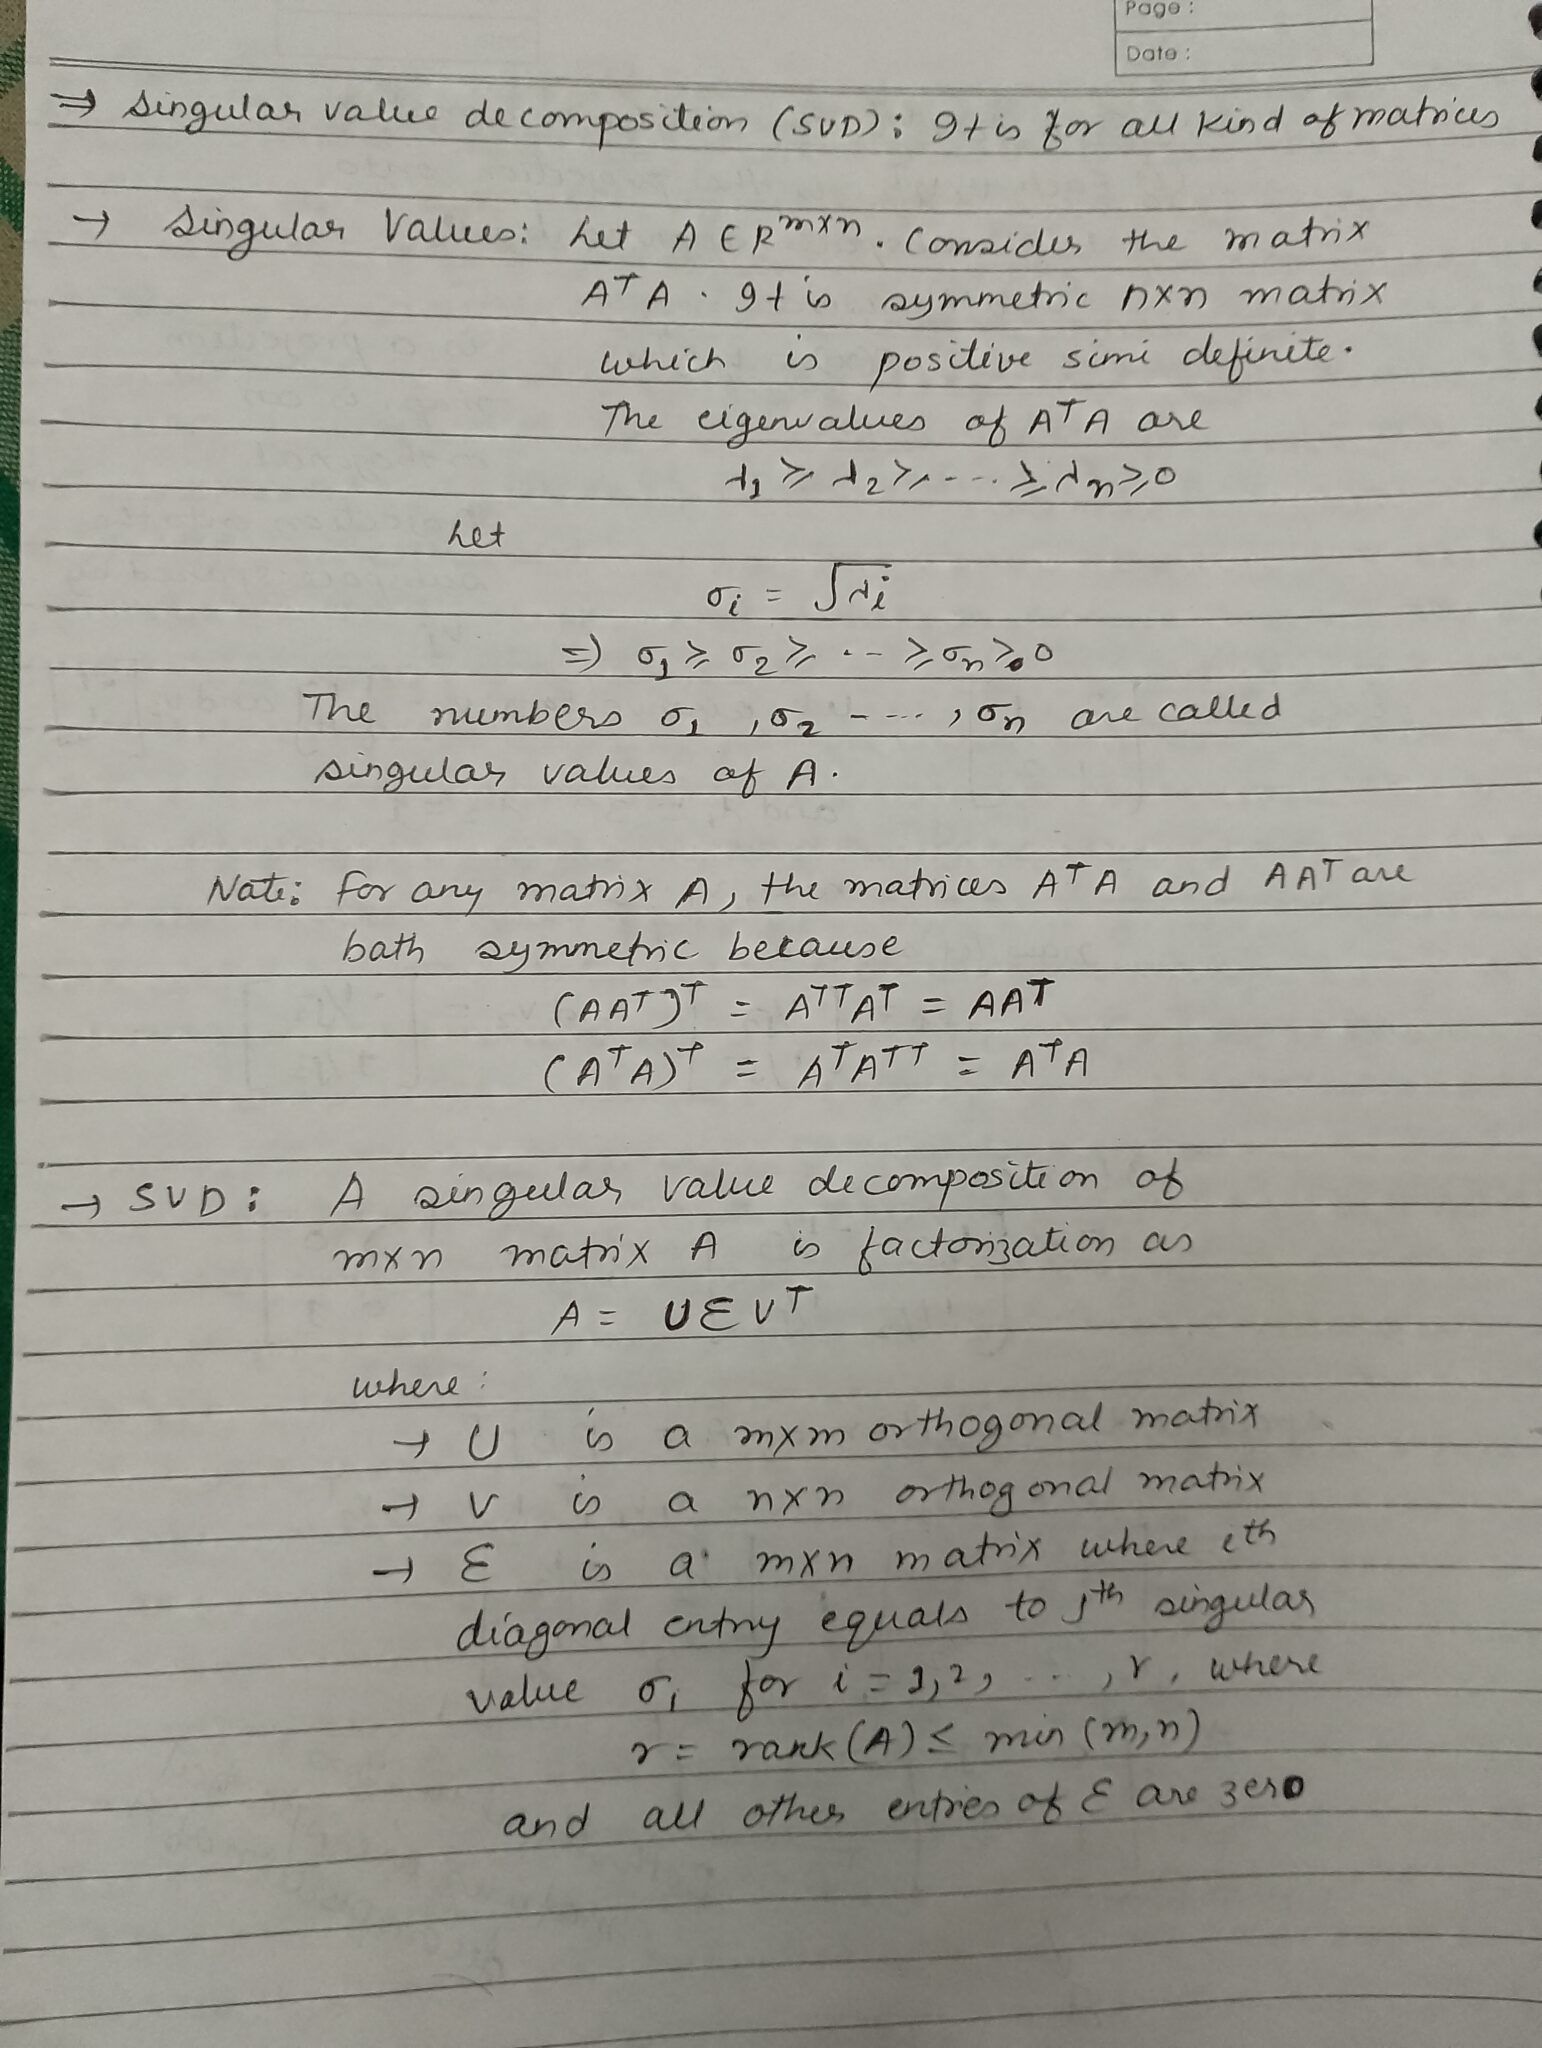 Page :
Date :
⇒ Singular value decomposition (SVD): It is for all kind of matrices
→ Singular Values: Let A ∈ R^{m×n}. Consider the matrix
AᵀA. It is symmetric n×n matrix
which is positive simi definite.
The eigenvalues of AᵀA are
λ₁ ≥ λ₂ ≥ ---- ≥ λₙ ≥ 0
Let
σᵢ = √λᵢ
⇒ σ₁ ≥ σ₂ ≥ .-- ≥ σₙ ≥ 0
The numbers σ₁, σ₂ ----, σₙ are called
singular values of A.
Note: For any matrix A, the matrices AᵀA and AAᵀ are
both symmetric because
(AAᵀ)ᵀ = AᵀᵀAᵀ = AAᵀ
(AᵀA)ᵀ = AᵀAᵀᵀ = AᵀA
→ SVD: A singular value decomposition of
m×n matrix A is factorization as
A = UƐVᵀ
where:
→ U is a m×m orthogonal matrix
→ V is a n×n orthogonal matrix
→ Ɛ is a m×n matrix where ith
diagonal entry equals to jth singular
value σᵢ for i = 1,2, ..., r, where
r = rank(A) ≤ min (m,n)
and all other entries of Ɛ are zero